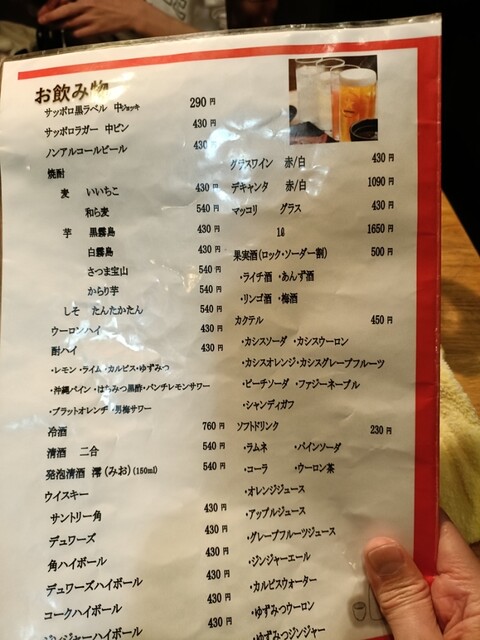 お飲み物
サッポロ黒ラベル 中ジョッキ 290円
サッポロラガー 中ビン 430円
ノンアルコールビール 430円
焼酎
麦 いいちこ 430円
和ら麦 540円
芋 黒霧島 430円
白霧島 430円
さつま宝山 540円
からり芋 540円
しそ たんたかたん 540円
ウーロンハイ 430円
酎ハイ 430円
・レモン・ライム・カルピス・ゆずみつ
・沖縄パイン・はちみつ黒酢・パンチレモンサワー
・ブラットオレンヂ・男梅サワー
冷酒 760円
清酒 二合 540円
発泡清酒 澪(みお)(150ml) 540円
ウイスキー
サントリー角 430円
デュワーズ 430円
角ハイボール 430円
デュワーズハイボール 430円
コークハイボール 430円
ジンジャーハイボール 430円
グラスワイン 赤/白 430円
デキャンタ 赤/白 1090円
マッコリ グラス 430円
1ℓ 1650円
果実酒(ロック・ソーダー割) 500円
・ライチ酒 ・あんず酒
・リンゴ酒 ・梅酒
カクテル 450円
・カシスソーダ ・カシスウーロン
・カシスオレンジ・カシスグレープフルーツ
・ピーチソーダ ・ファジーネーブル
・シャンディガフ
ソフトドリンク 230円
・ラムネ ・パインソーダ
・コーラ ・ウーロン茶
・オレンジジュース
・アップルジュース
・グレープフルーツジュース
・ジンジャーエール
・カルピスウォーター
・ゆずみつウーロン
・ゆずみつジンジャー